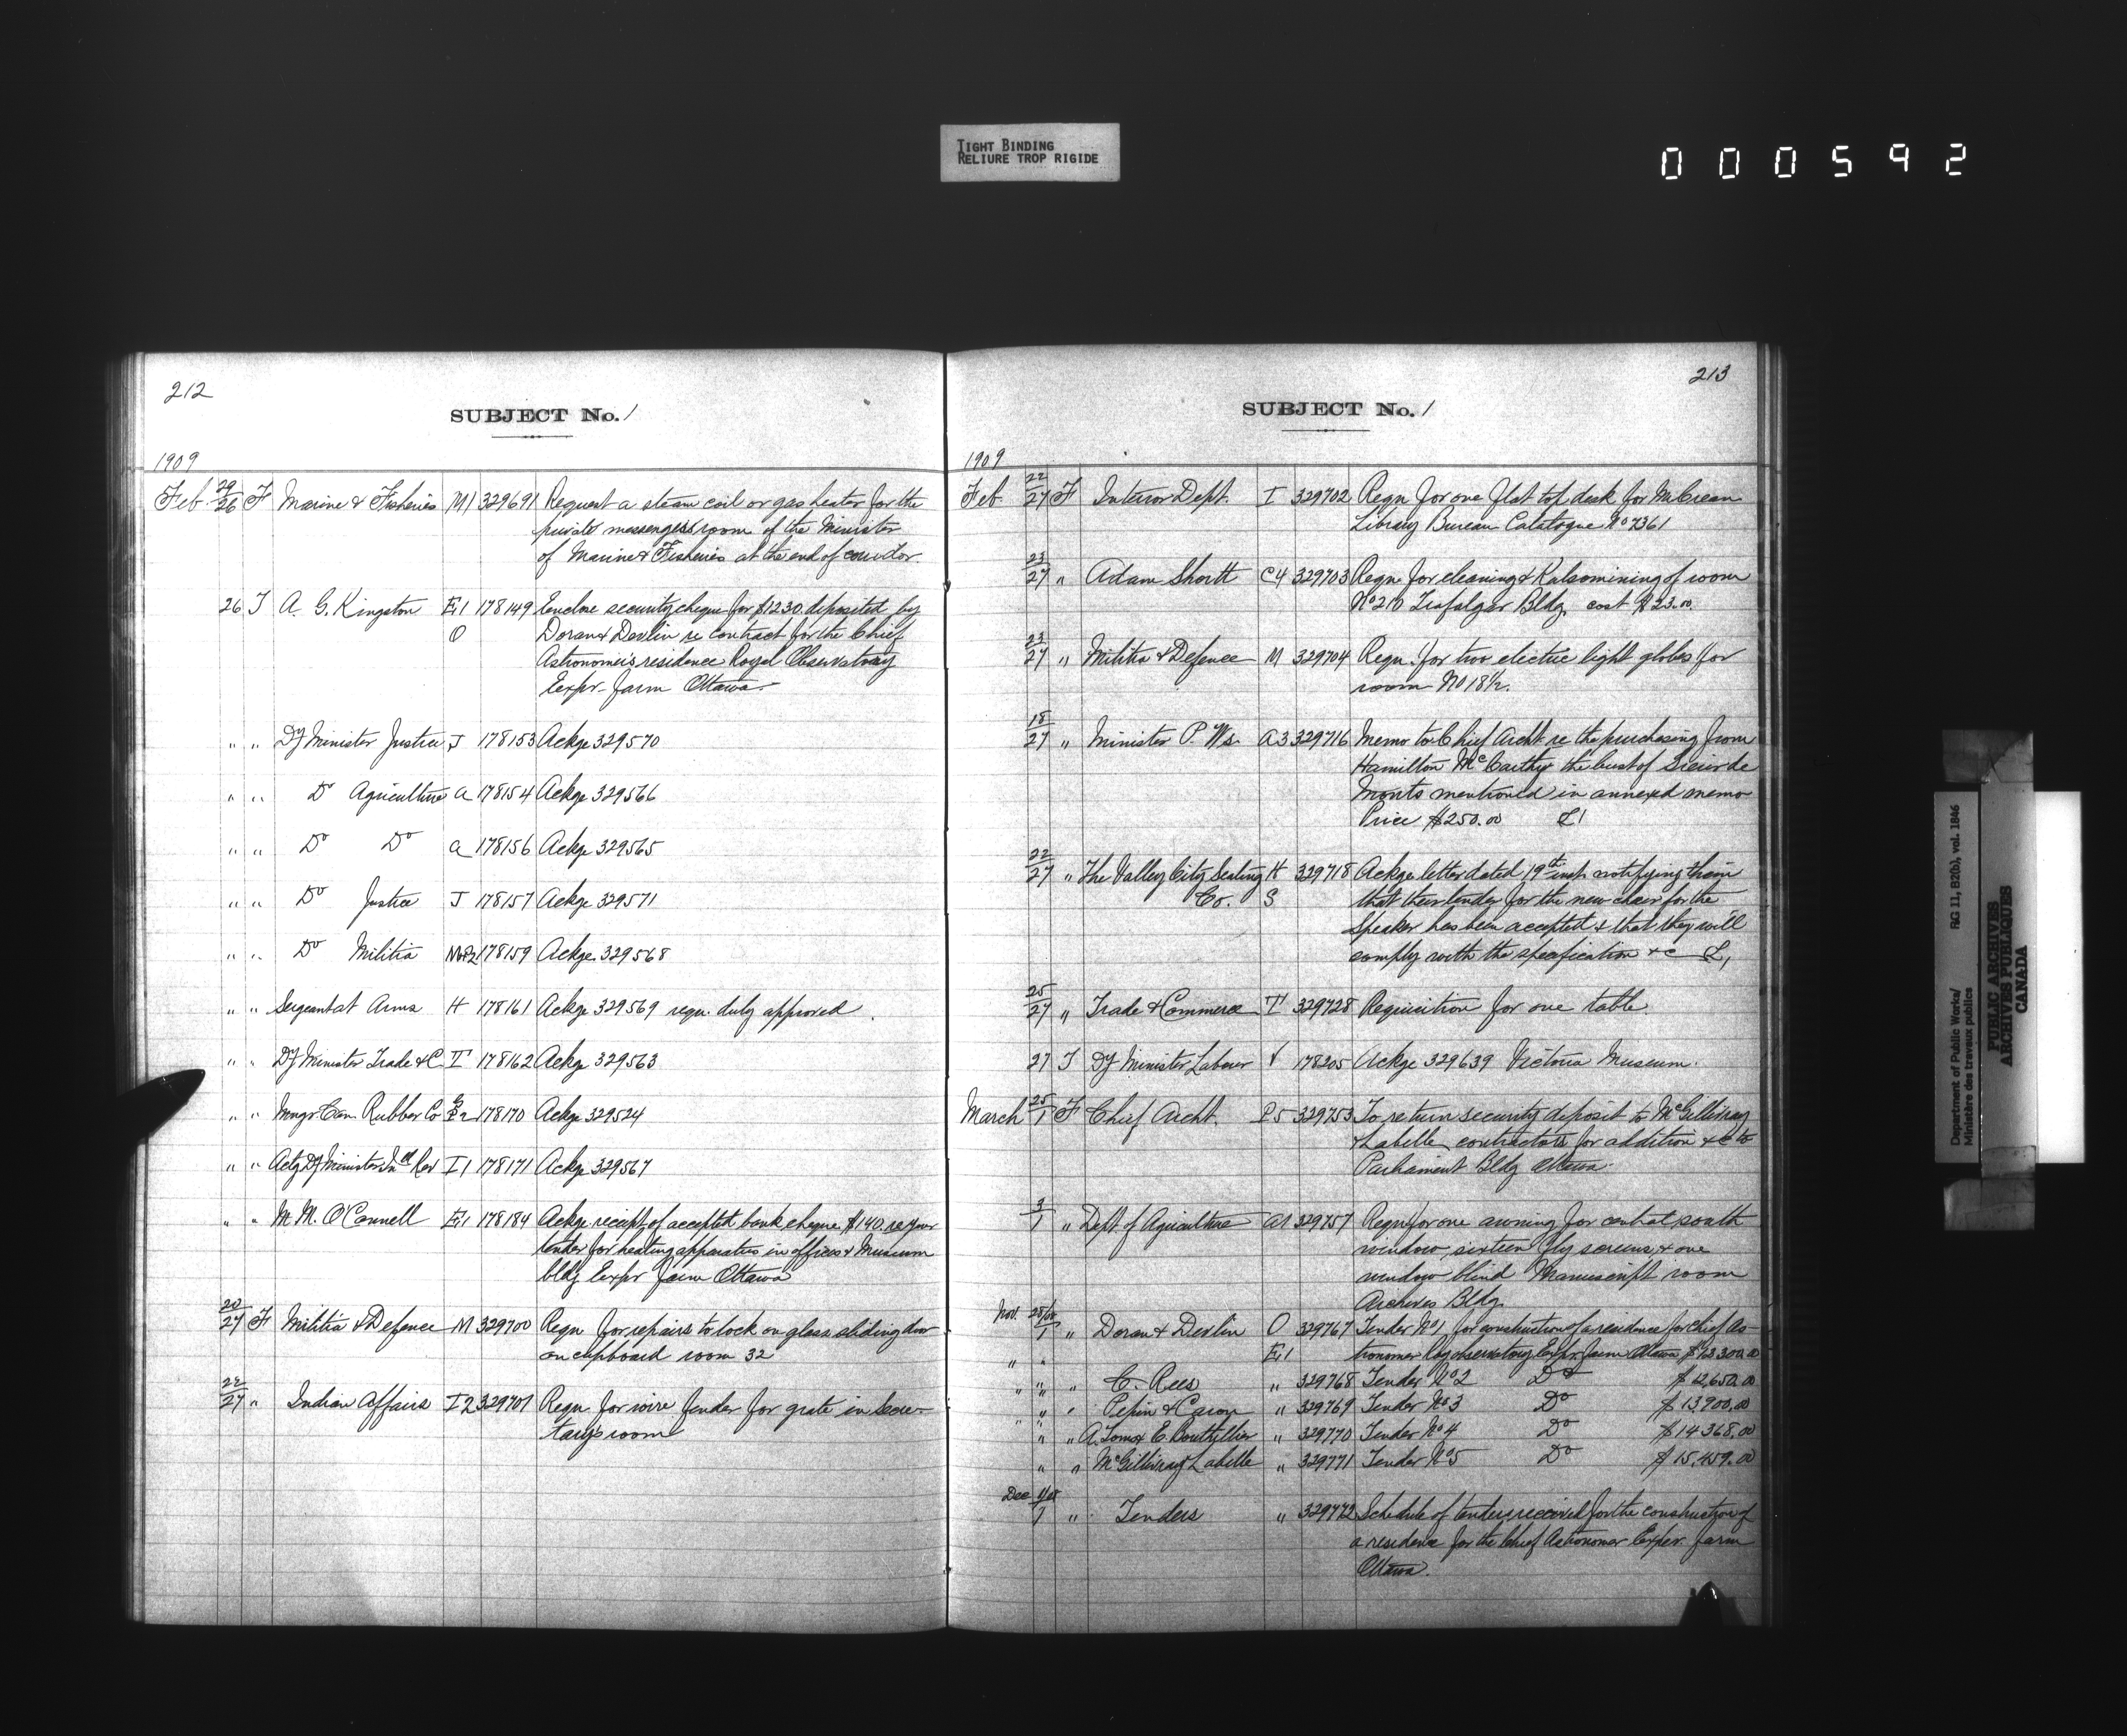 TIGHT BINDING
RELIURE TROP RIGIDE
000592
212
SUBJECT No. 1
1909
Feb. 24/26 F Marine & Fisheries M1 329691 Request a steam coil or gas heater for the
private messengers room of the Minister
of Marine & Fisheries at the end of corridor.
26 T A. G. Kingston E.1 178149 Enclose security cheque for $1230. deposited by
O Doran & Devlin re contract for the Chief
Astronomer's residence Royal Observatory
Exper. farm Ottawa.
" " Dy Minister Justice J 178153 Ackge 329570
" " Do Agriculture a 178154 Ackge 329566
" " Do Do a 178156 Ackge 329565
" " Do Justice J 178157 Ackge 329571
" " Do Militia 178159 Ackge. 329568
" " Sergeant at Arms H 178161 Ackge 329569 requ. duly approved.
" " Dy Minister Trade & C. T 178162 Ackge 329563
" " Mngr Can. Rubber Co 178170 Ackge 329524
" " Actg Dy Minister Ind Rev I1 178171 Ackge 329567
" " M. M. O'Connell E.1 178184 Ackge receipt of accepted bank cheque $140. re your
tender for heating apparatus in offices & Museum
bldg Exper farm Ottawa
20/27 F Militia & Defence M 329700 Requ for repairs to lock on glass sliding door
on cupboard room 32
22/27 " Indian Affairs I2 329701 Requ for wire fender for grate in Secre-
tary's room
213
SUBJECT No. 1
1909
Feb. 22/27 F Interior Dept. I 329702 Requ for one flat top desk for McCrean
Library Bureau Catalogue No 7361
23/27 " Adam Shortt C4 329703 Requ for cleaning & Kalsomining of room
No 210 Trafalgar Bldg. cost $23.00.
23/27 " Militia & Defence M 329704 Requ. for two electric light globes for
room No 18½.
18/27 " Minister P. Ws. A3 329716 Memo to Chief Archt. re the purchasing from
Hamilton McCarthy the bust of Sieur de
Monts mentioned in annexed memo
Price $250.00 L1
22/27 " The Valley City Seating H 329718 Ackge letter dated 19th inst. notifying them
Co. S that their tender for the new chair for the
Speaker has been accepted & that they will
comply with the specification &c L1
25/27 " Trade & Commerce T 329728 Requisition for one table.
27 T Dy Minister Labour V 178205 Ackge 329639 Victoria Museum.
March 25/1 F Chief Archt. P5 329753 To return security deposit to McGillivray
& Labelle contractors for addition &c to
Parliament Bldg Ottawa.
3/1 " Dept of Agriculture a1 329757 Requ for one awning for central south
window, sixteen fly screens, & one
window blind Manuscript room
Archives Bldg.
Nov. 28/08
1 " Doran & Devlin O 329767 Tender No 1 for construction of a residence for chief As-
" " E.1 tronomer Roy observatory Exper. farm Ottawa, $12300.00
" " " C. Rees " 329768 Tender No 2 Do $12,650.00
" " Pepin & Caron " 329769 Tender No 3 Do $13900.00
" " " " 329770 Tender No 4 Do $14368.00
" " McGillivray & Labelle " 329771 Tender No 5 Do $15,459.00
Dec 1/08
1 " Tenders " 329772 Schedule of tenders received for the construction of
a residence for the Chief Astronomer Exper. farm
Ottawa.
Department of Public Works/
Ministère des travaux publics
RG 11, B2(b), vol. 1846
PUBLIC ARCHIVES
ARCHIVES PUBLIQUES
CANADA